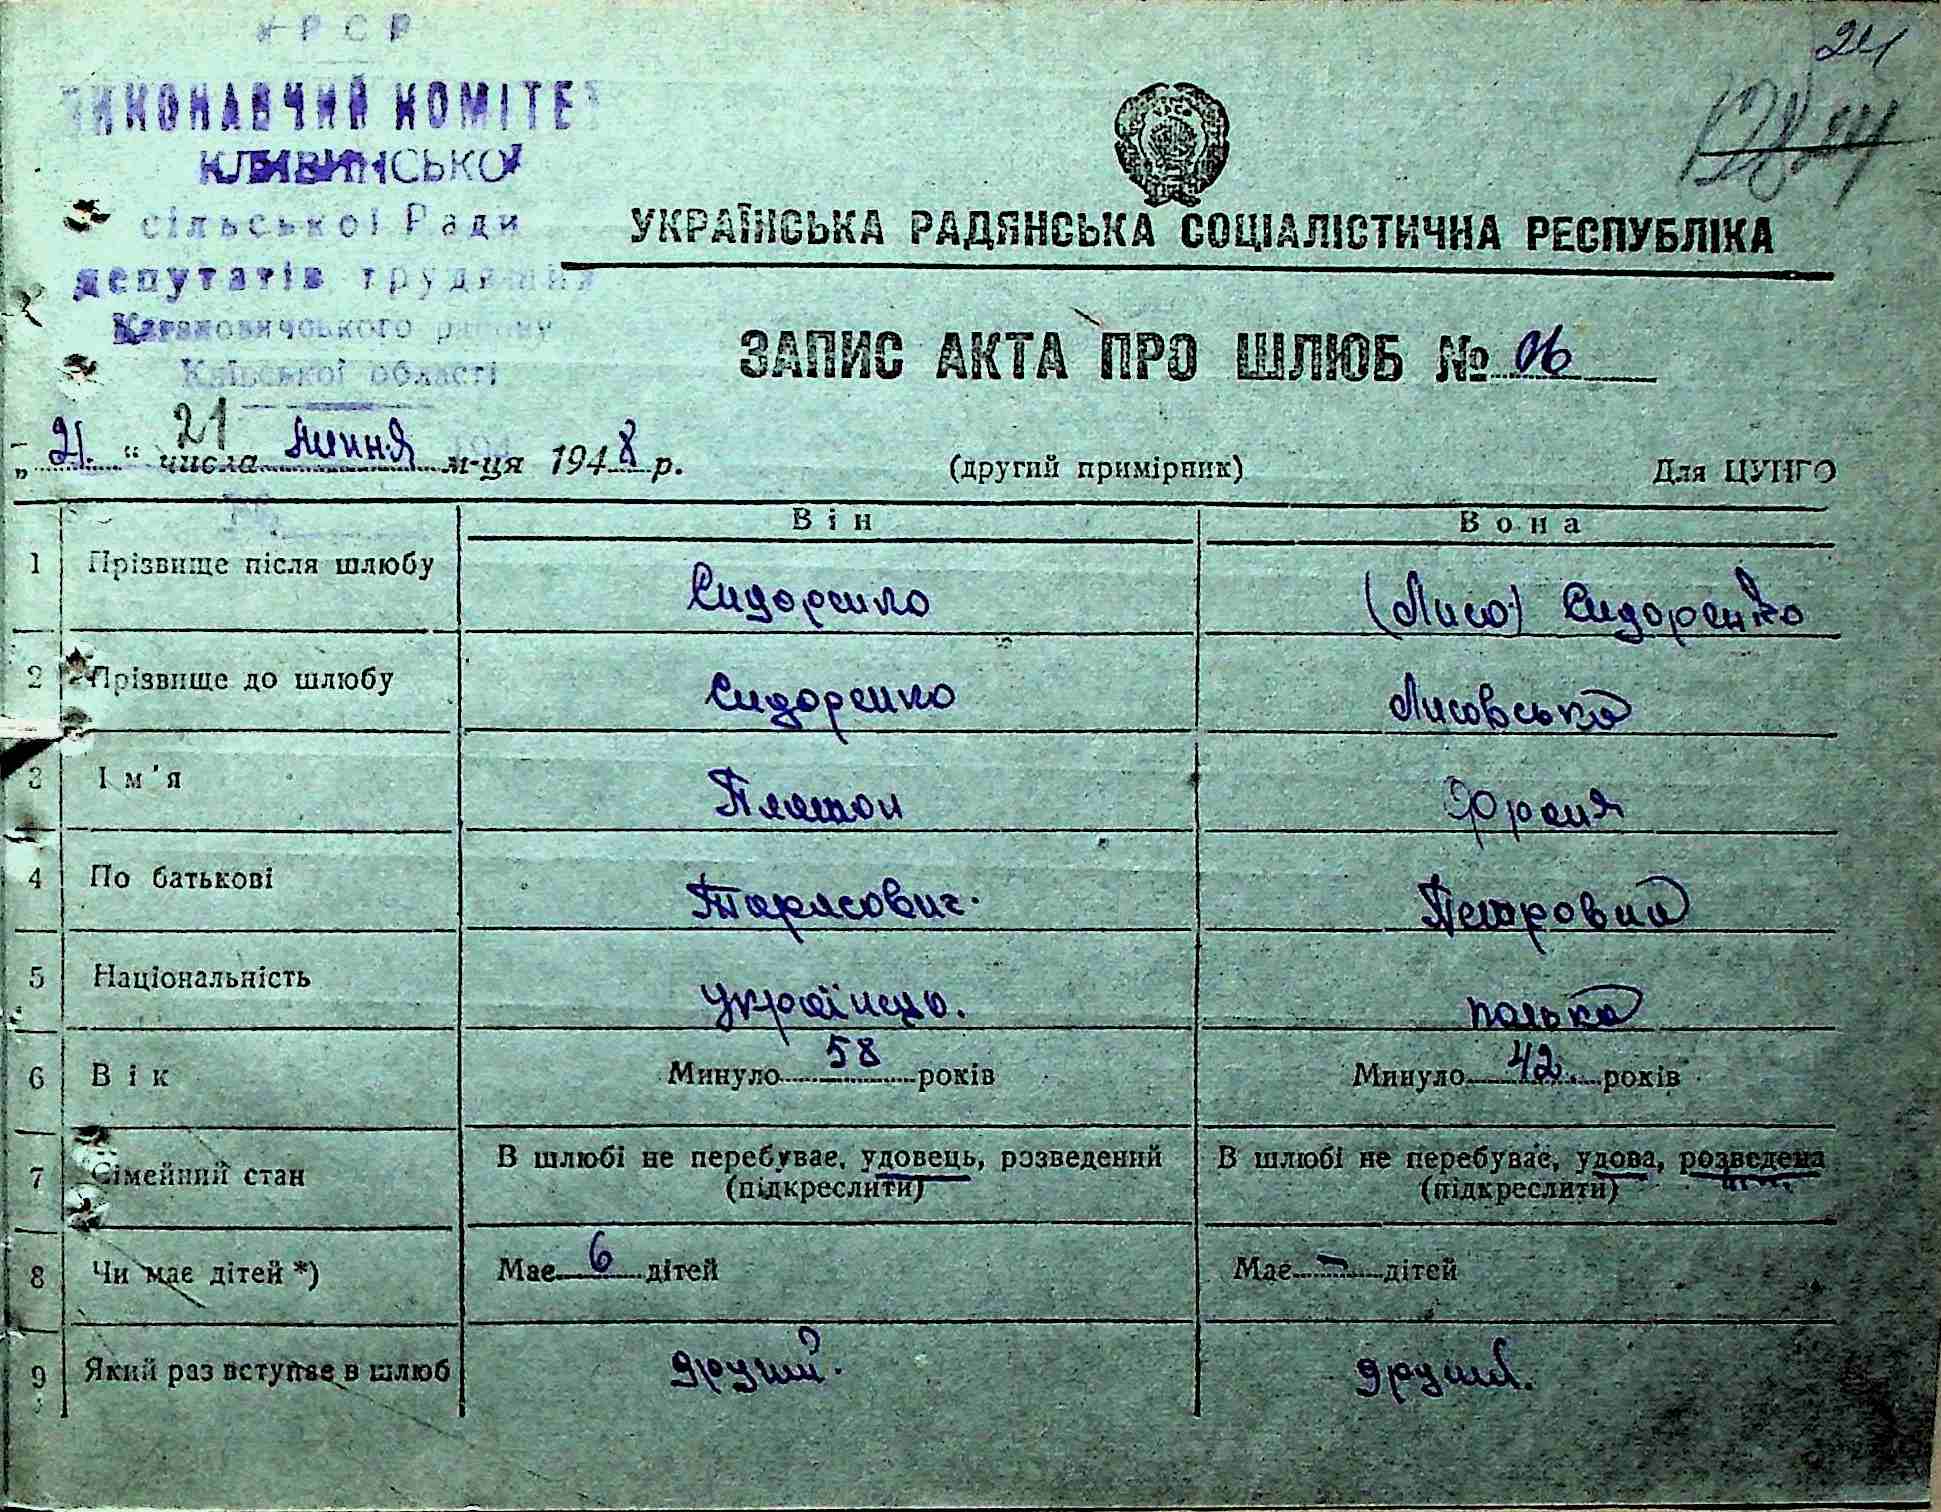 УРСР
24
ВИКОНАВЧИЙ КОМІТЕТ
КЛИВИНСЬКОЇ
сільської Ради
депутатів трудящих
Кагановичського району
Київської області
УКРАЇНСЬКА РАДЯНСЬКА СОЦІАЛІСТИЧНА РЕСПУБЛІКА
ЗАПИС АКТА ПРО ШЛЮБ № 06
21
„21.“ числа липня м-ця 1948 р. (другий примірник) Для ЦУНГО
Він Вона
1 Прізвище після шлюбу Сидоренко (Лисо) Сидоренко
2 Прізвище до шлюбу Сидоренко Лисовська
3 Ім'я Платон Фросия
4 По батькові Тарасович. Петровна
5 Національність українець. полька
6 Вік Минуло 58 років Минуло 42. років
7 Сімейний стан В шлюбі не перебуває, удовець, розведений В шлюбі не перебуває, удова, розведена
(підкреслити) (підкреслити)
8 Чи має дітей *) Має 6 дітей Має – дітей
9 Який раз вступає в шлюб другий. другий.